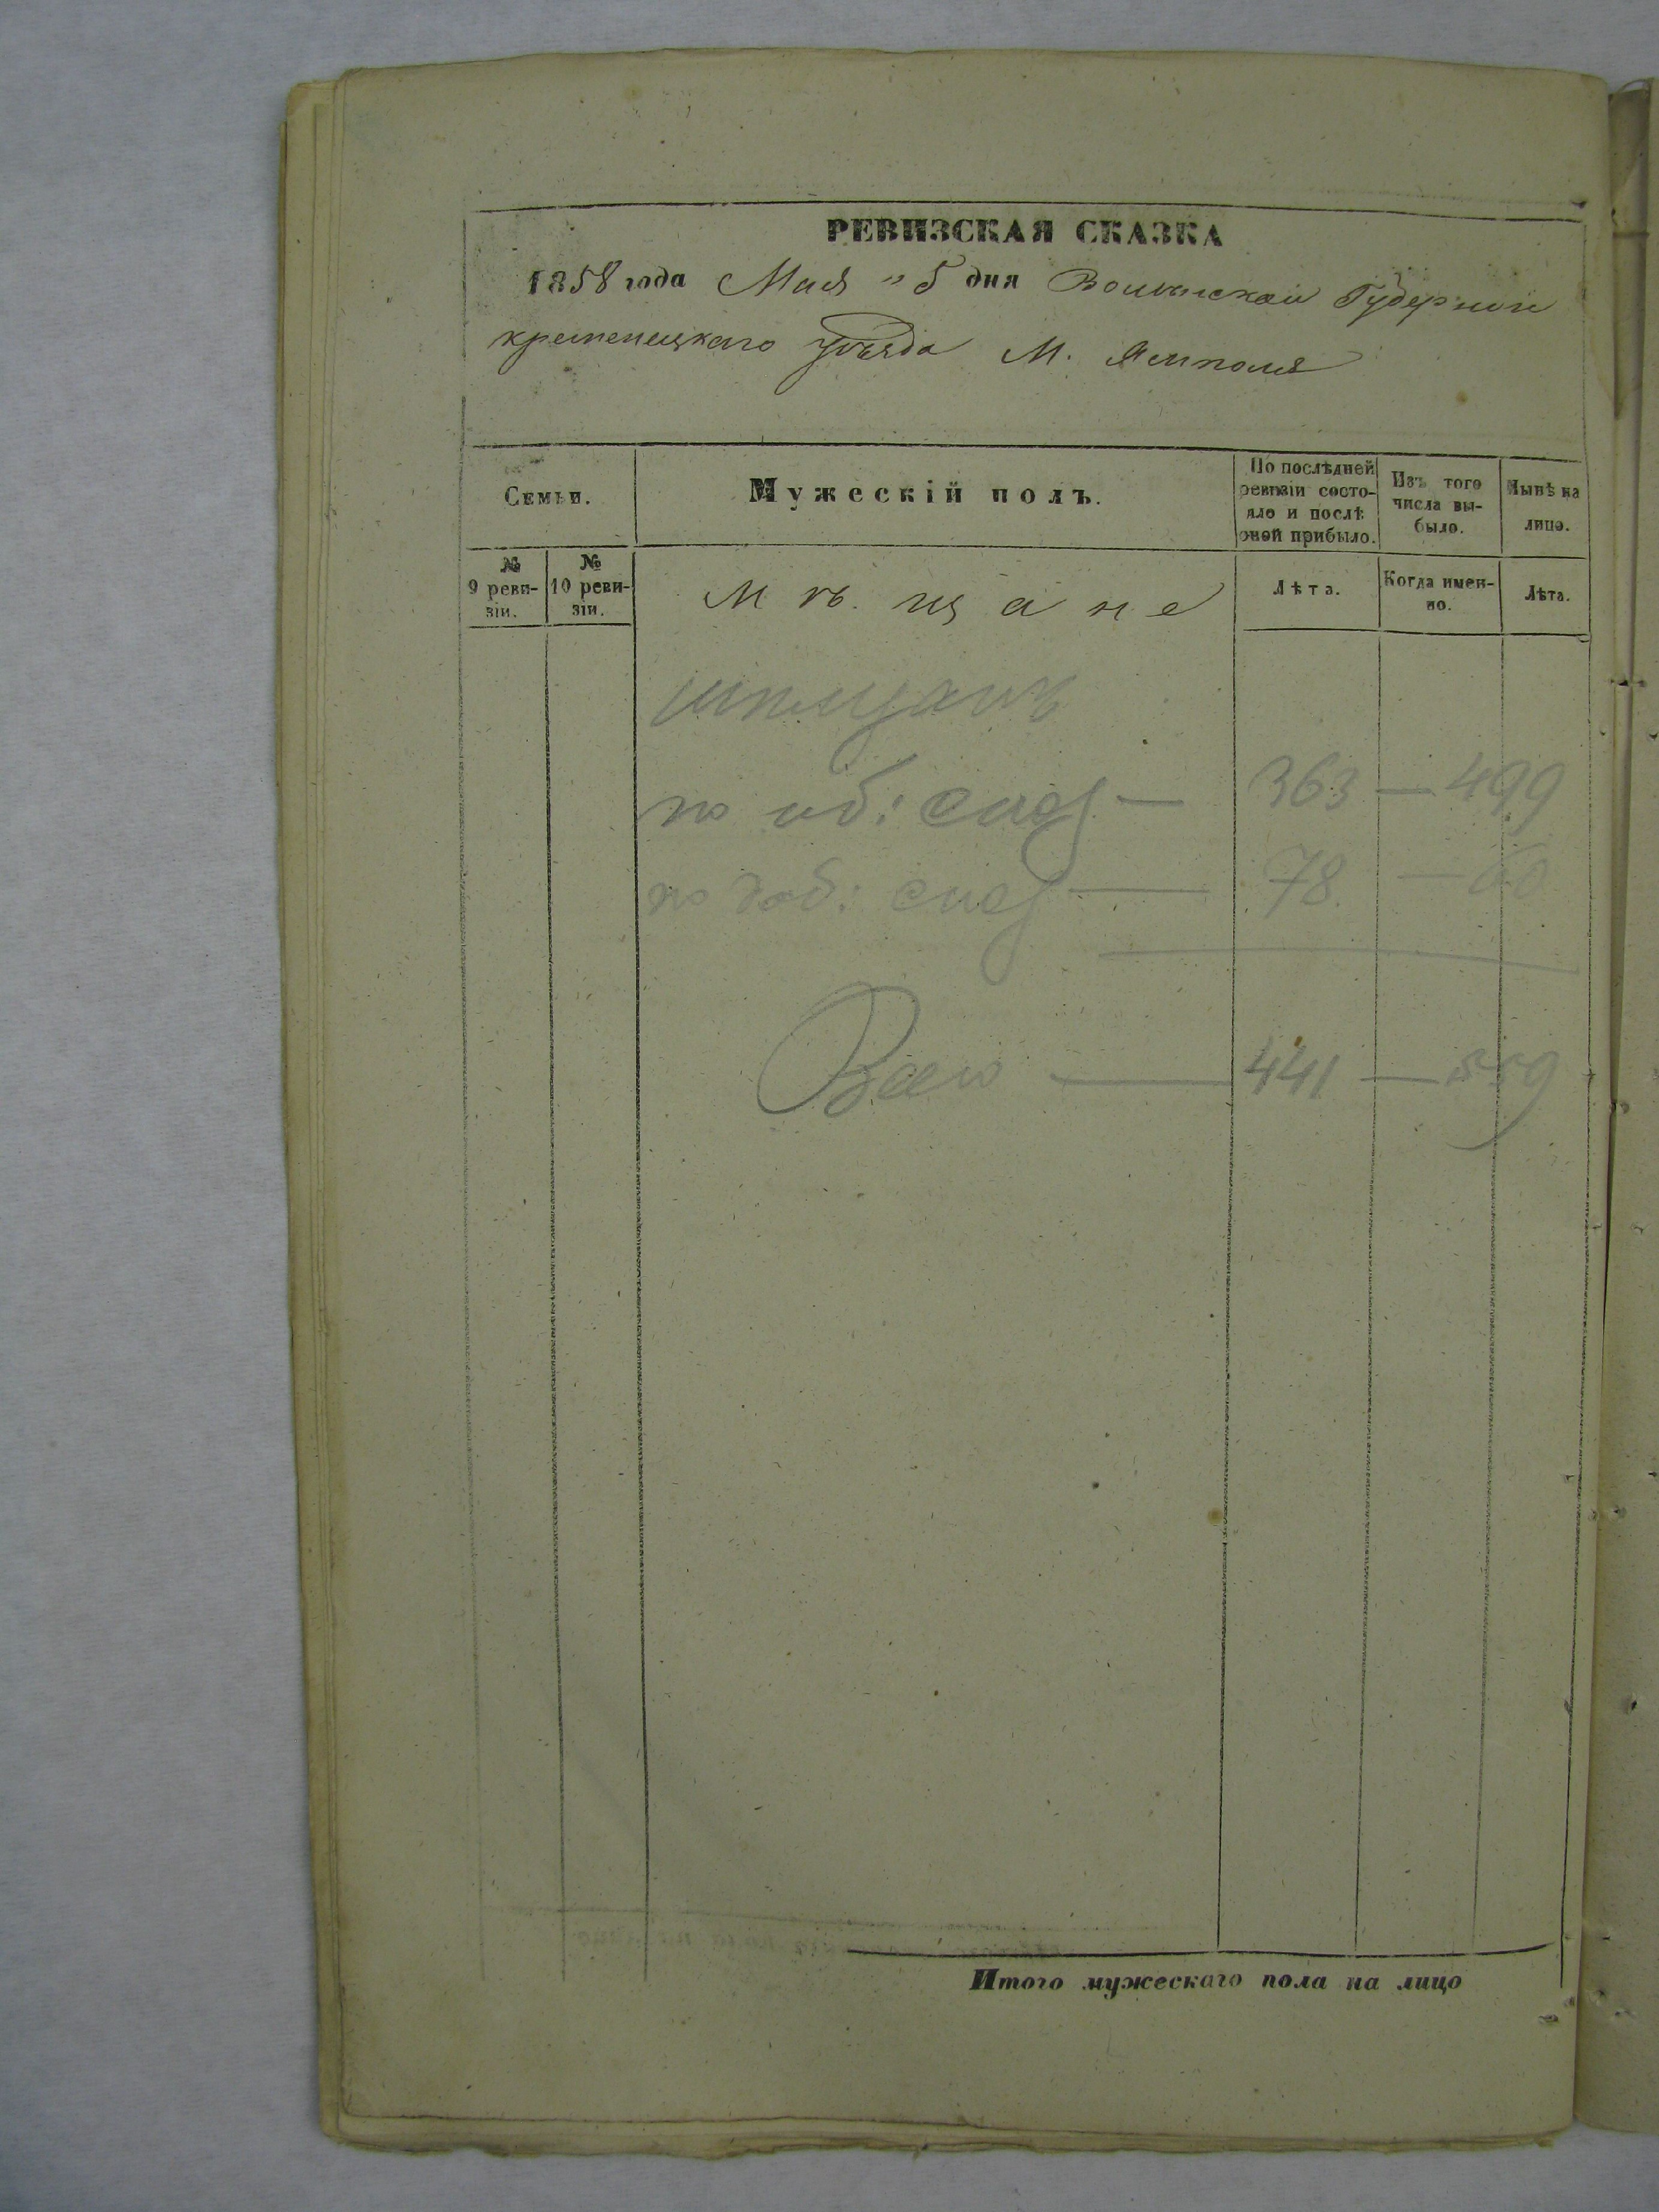 РЕВИЗСКАЯ СКАЗКА
1858 года Мая „ 5 дня Волынской Губернии
кременецкаго уѣзда М. Ямполя
Семьи.
Мужескій полъ.
По послѣдней ревизіи состояло и послѣ оной прибыло.
Изъ того числа выбыло.
Нынѣ на лицо.
№ 9 ревизіи.
№ 10 ревизіи.
Мѣщане
Лѣта.
Когда именно.
Лѣта.
по об: сказ — 363 — 499
по доб: сказ — 78 — 60
Всего — 441 — 559
Итого мужескаго пола на лицо